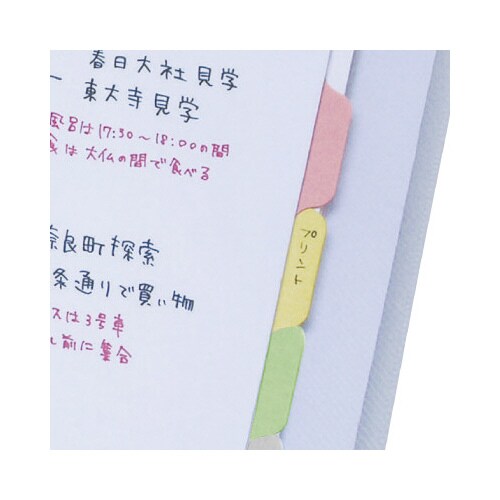 春日大社見学
東大寺見学
風呂は17:30〜18:00の間
食は大仏の間で食べる
奈良町探索
条通りで買い物
スは3号車
し前に集合
プリント